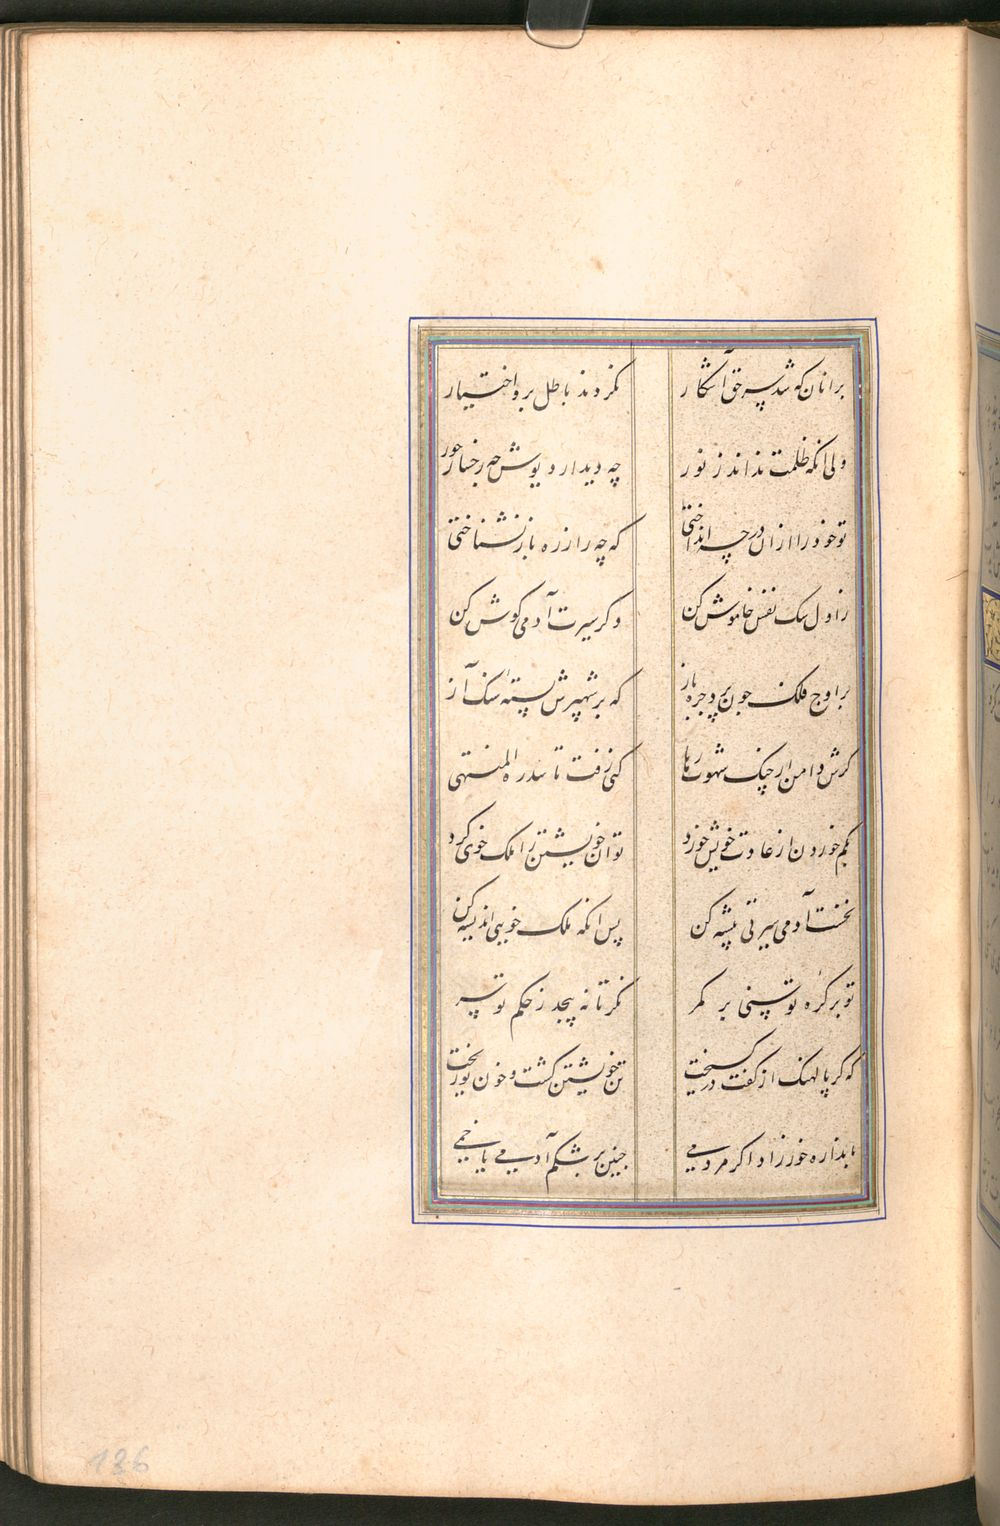 برانان که شد سر حق آشکار نکردند باطل برو اختیار
ولی انکه ظلمت نداند ز نور چه دیدار دیوش چه رخسار حور
تو خود را ازان در چه انداختی که چه را ز ره باز نشناختی
ز اول سک نفس خاموش کن دکر سیرت آدمی کوش کن
بر اوج فلک چون پرد جره باز که بر شهپرش بستهٔ سنک آز
کرش دامن از چنک شهوت رها کنی رفت تا سدرة المنتهی
بکم خوردن از عادت خویش خورد توان خویشتن را ملک خوی کرد
نخست آدمی سیرتی پیشه کن پس انکه ملک خویی اندیشه کن
تو بر کرهٔ توسنی بر کمر نکر تا نه پیچد ز حکم تو سر
که کر پالهنک از کفت در کسیخت تن خویشتن کشت و خون تو ریخت
باندازه خور زاد اکر مردمی چنین پر شکم آدمی یا خمی
136